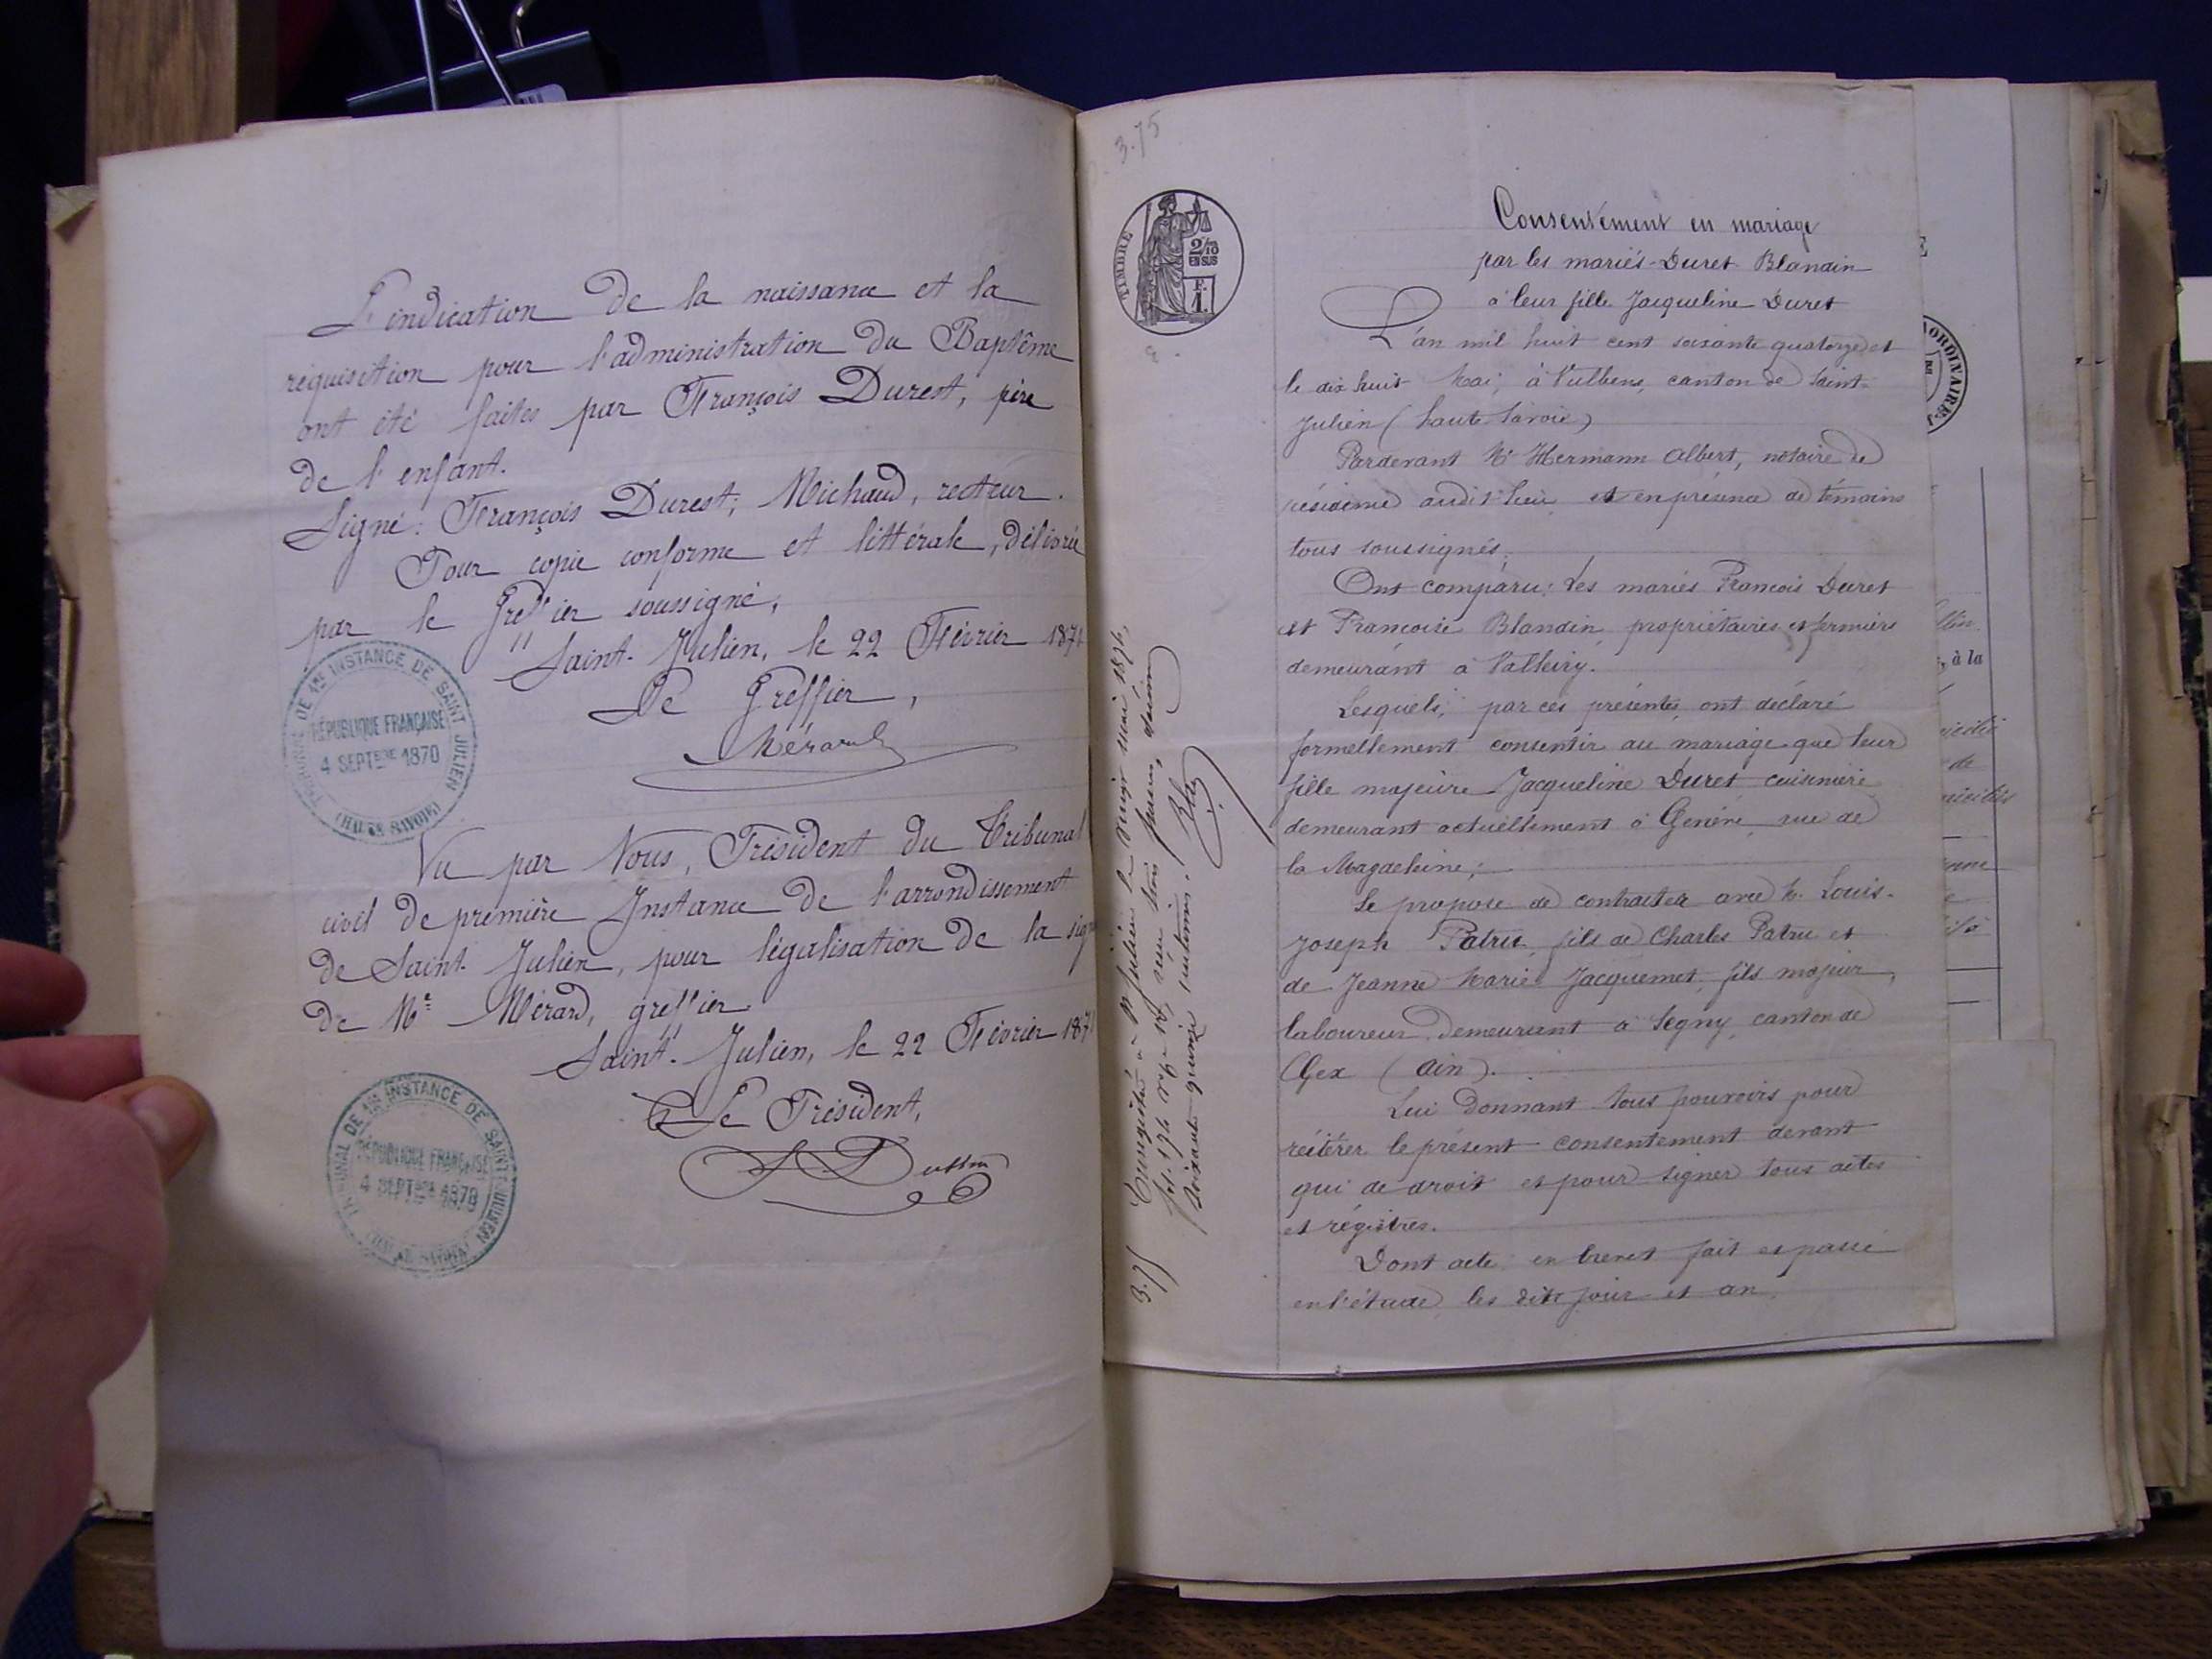 L'indication de la naissance et la
réquisition pour l'administration du Baptême
ont été faites par François Durest, père
de l'enfant.
Signé: François Durest; Michaud, recteur.
Pour copie conforme et littérale, délivrée
par le Greffier soussigné,
Saint-Julien, le 22 Février 187
Le Greffier,
Mérard
TRIBUNAL DE 1RE INSTANCE DE SAINT JULIEN
RÉPUBLIQUE FRANÇAISE
4 SEPTBRE 1870
(HAUTE SAVOIE)
Vu par Nous, Président du Tribunal
civil de première Instance de l'arrondissement
de Saint-Julien, pour légalisation de la sign
de Me Mérard, greffier
Saint-Julien, le 22 Février 187
Le Président,
TRIBUNAL DE 1RE INSTANCE DE SAINT JULIEN
RÉPUBLIQUE FRANÇAISE
4 SEPTBRE 1870
(HAUTE SAVOIE)
3.75
TIMBRE
2/10
EN SUS
F.
1.
Consentement en mariage
par les mariés Duret Blandin
à leur fille Jacqueline Duret
L'an mil huit cent soixante quatorze et
le dix huit Mai, à Vulbens, canton de Saint-
Julien (haute Savoie)
Pardevant Me Hermann Albert, notaire de
résidence audit lieu et en présence de témoins
tous soussignés,
Ont comparu: Les mariés François Duret
et Françoise Blandin propriétaires et fermiers
demeurant à Valleiry.
Lesquels, par ces présentes, ont déclaré
formellement consentir au mariage que leur
fille majeure Jacqueline Duret cuisinière
demeurant actuellement à Genève, rue de
la Magdeleine;
Se propose de contracter avec M. Louis-
Joseph Patru, fils de Charles Patru et
de Jeanne Marie Jacquemet, fils majeur,
laboureur, demeurant à Segny, canton de
Gex (Ain).
Lui donnant tous pouvoirs pour
réitérer le présent consentement devant
qui de droit et pour signer tous actes
et régistres.
Dont acte en brevet fait et passé
en l'étude, les dits jour et an,
Enregistré à St Julien le vingt mai 1874,
soixante quinze centimes.
3.75
ORDINAIRE
, à la
de